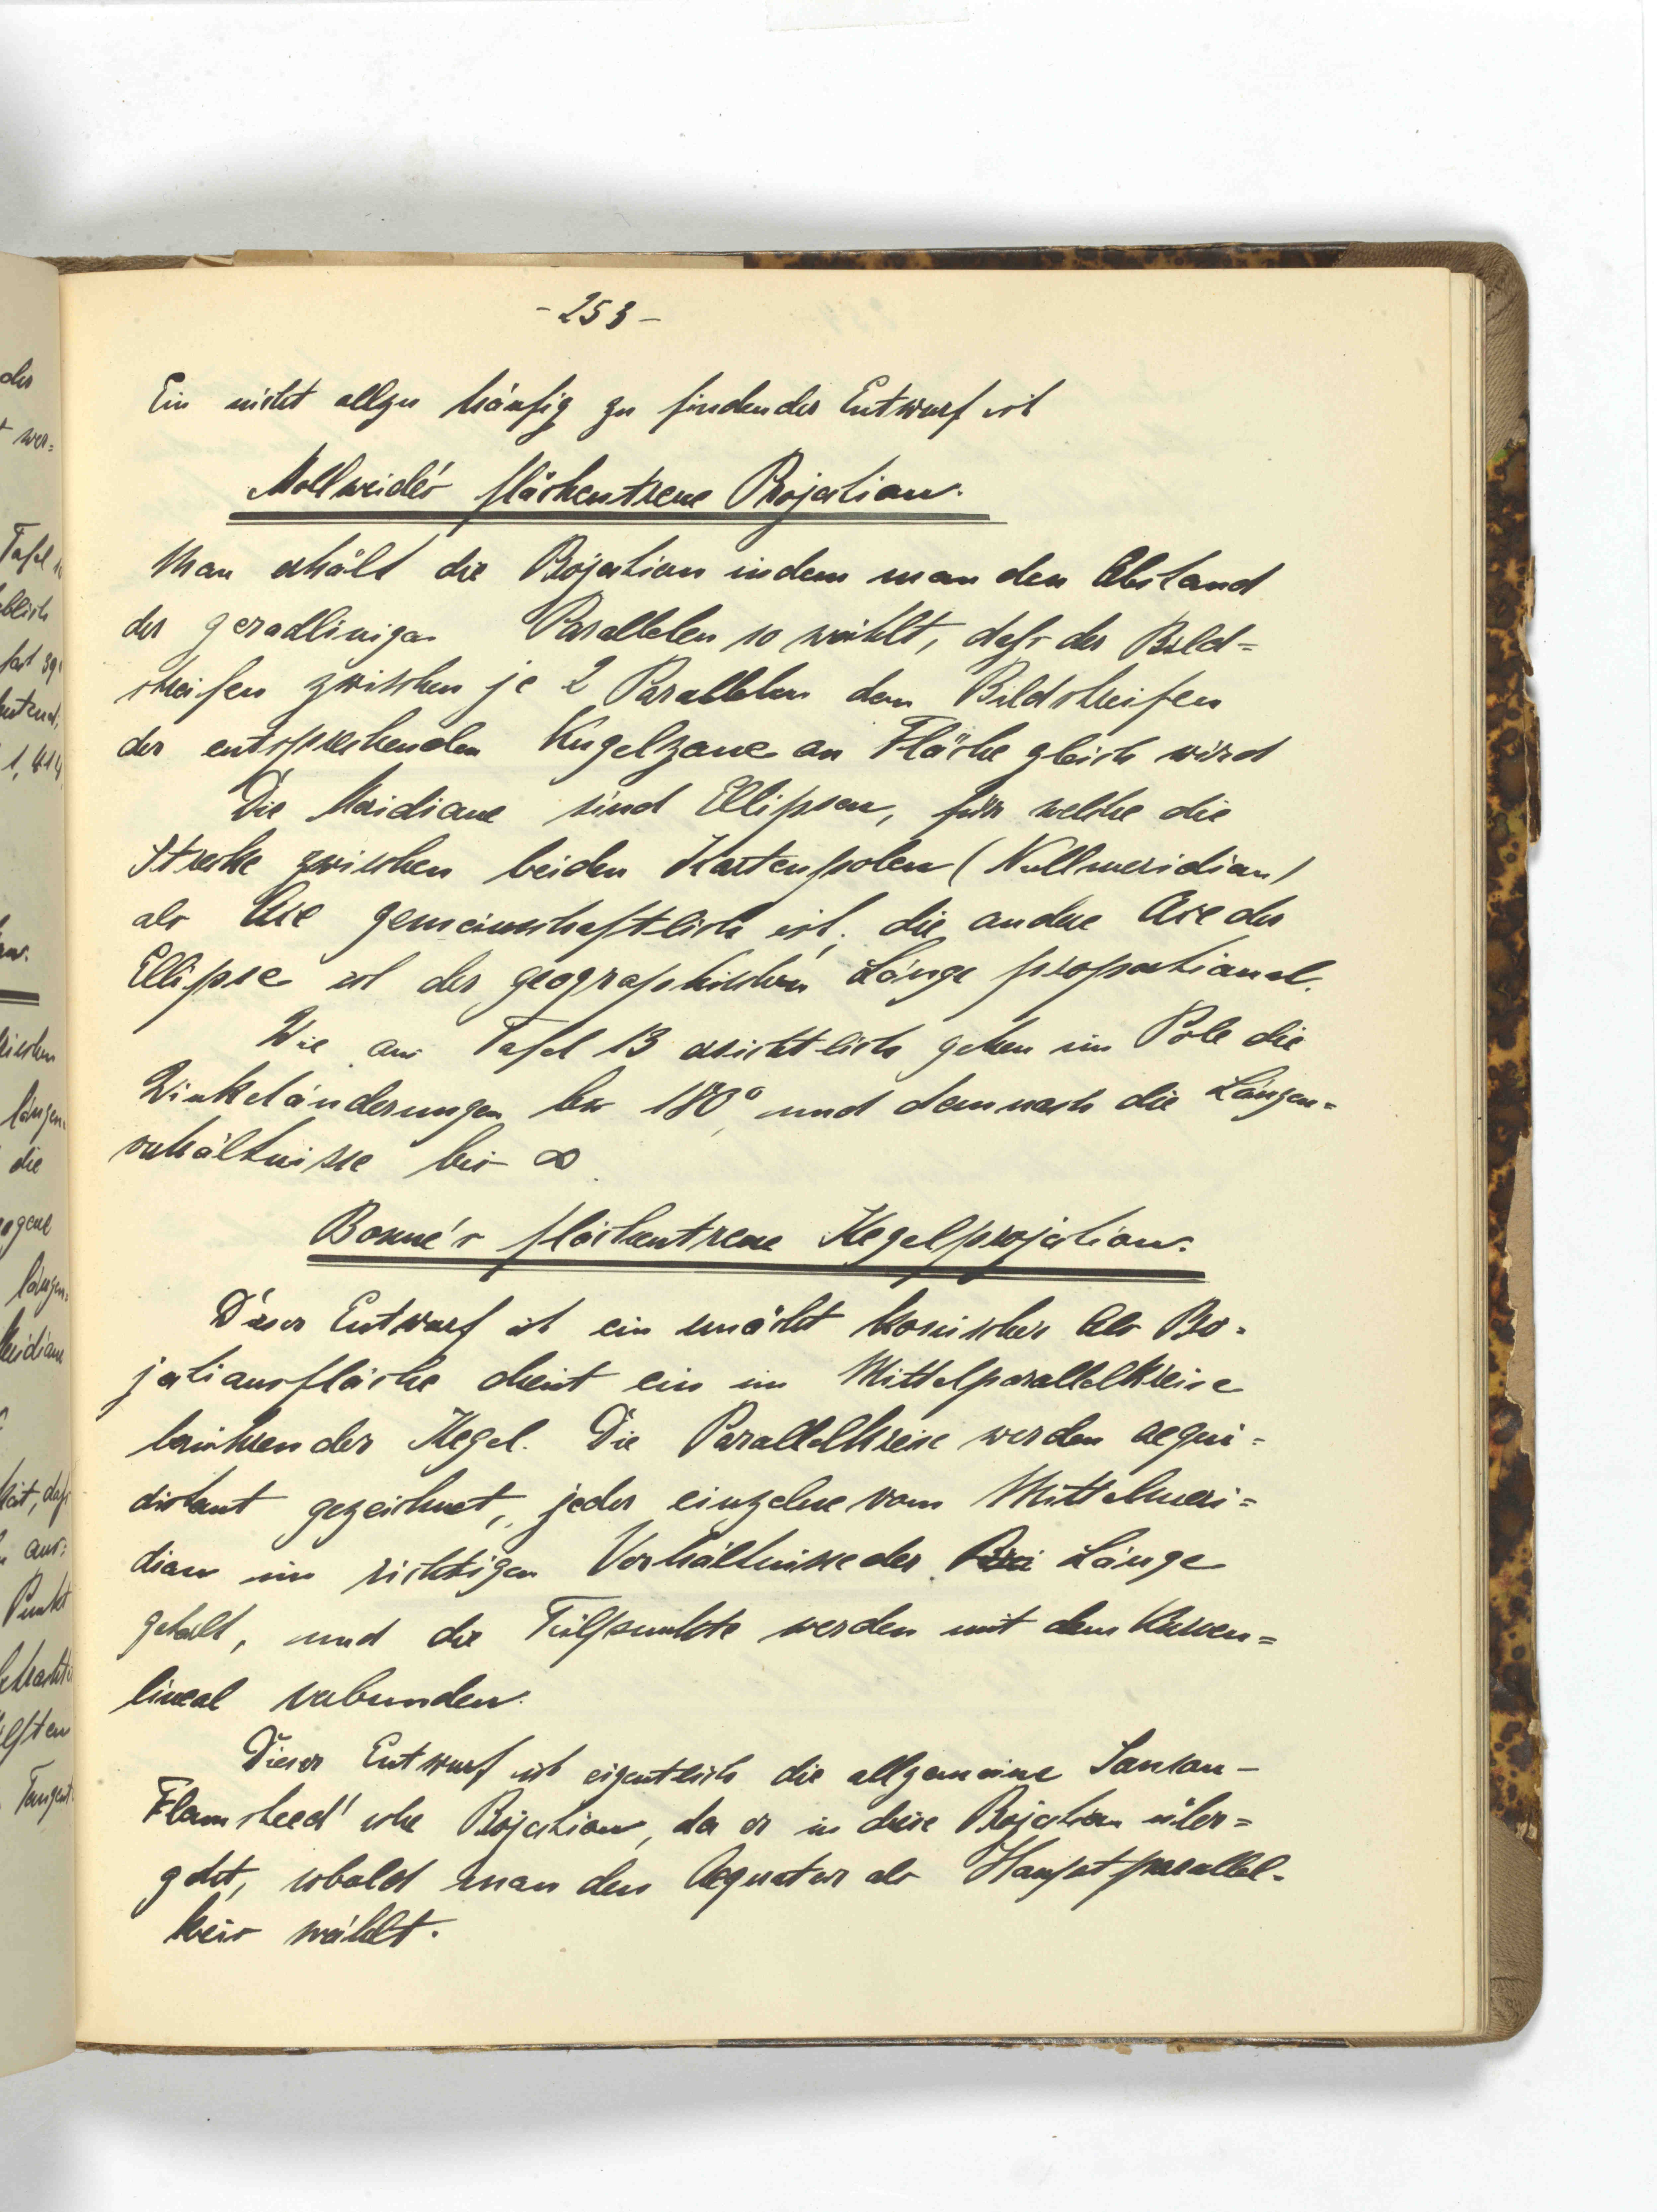 - 253 -
Ein nicht allzu häufig zu findender Entwurf ist
Mollweide's flächentreue Projection.
Man erhält die Projection indem man den Abstand
der geradlinigen Parallelen so wählt, dass der Bild=
streifen zwischen je 2 Parallelen dem Bildstreifen
der entsprechenden Kugelzone an Fläche gleich wird
Die Meridiane sind Ellipsen, für welche die
Strecke zwischen beiden Kartenpolen (Nullmeridian)
als Axe gemeinschaftlich ist, die andere Axe der
Ellipse ist der geographischen Länge proportional.
Wie aus Tafel 13 ersichtlich gehen im Pole die
Winkeländerungen bis 180°, und demnach die Längen=
verhältnisse bis ∞.
Bonne's flächentreue Kegelprojection.
Dieser Entwurf ist ein unächt konischer Als Pro=
jectionsfläche dient ein im Mittelparallelkreise
berührender Kegel. Die Parallelkreise werden aequi=
distant gezeichnet, jeder einzelne vom Mittelmeri=
dian im richtigen Verhältnisse der Länge
geteilt, und die Teilpunkte werden mit dem Kurven=
lineal verbunden.
Dieser Entwurf ist eigentlich die allgemeine Sanson-
Flamsteed'sche Projection, da er in diese Projection über=
geht, sobald man den Aequator als Hauptparallel-
kreis wählt.
der
wer=
Tafel
1,414
längen=
die
längen=
dass
aus=
Punkt
Tangent